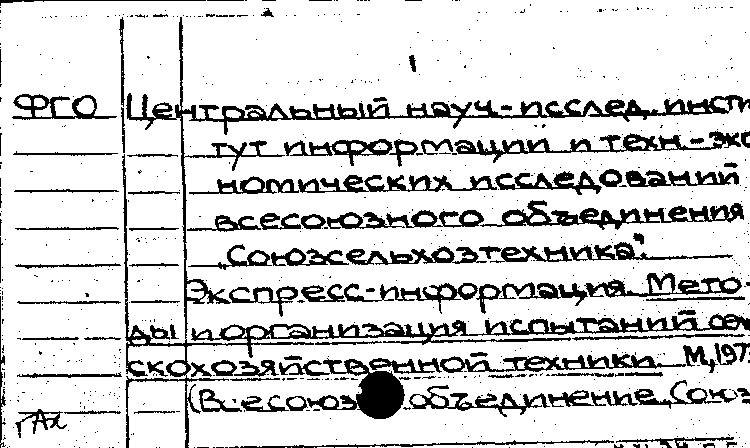 ФГО Центральный науч-исслед. инсти
тут информации и техн-эко
номических исследований
всесоюзного объединения
„Союзсельхозтехника".
Экспресс-информация. Мето-
ды и организация испытаний сель
скохозяйственной техники. М, 197
(Всесоюз объединение „Союз